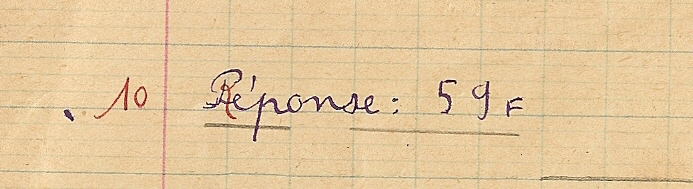 10 Réponse : 59 F